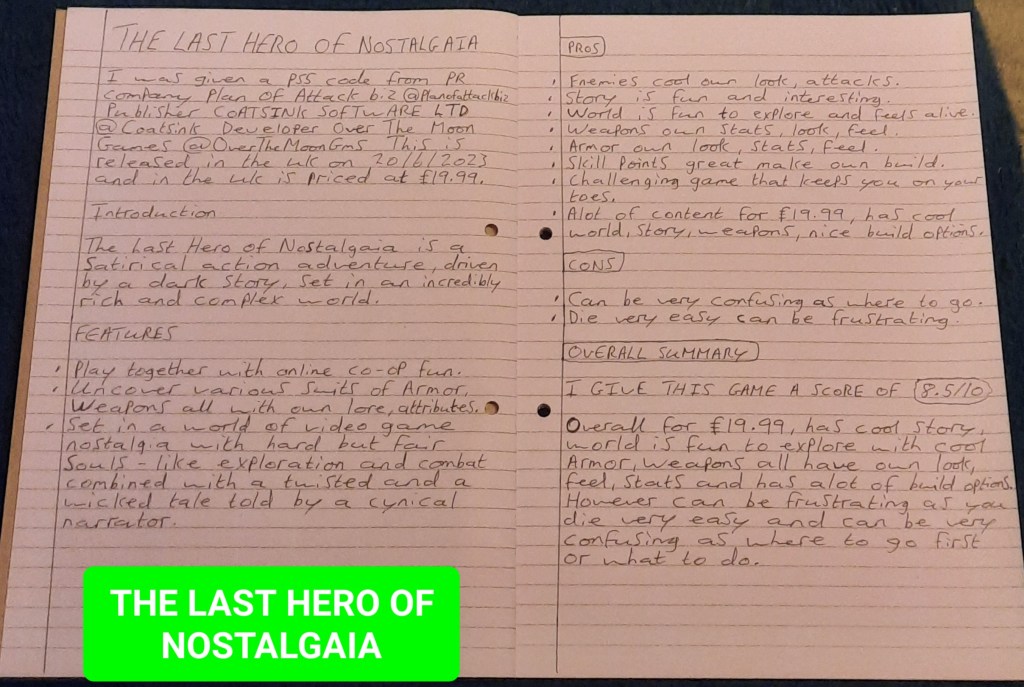 THE LAST HERO OF NOSTALGAIA
I was given a PS5 code from PR
company Plan Of Attack biz @Planofattackbiz
Publisher COATSINK SOFTWARE LTD
@Coatsink Developer Over The Moon
Games @OverTheMoonGms This is
released in the uk on 20/6/2023
and in the uk is priced at £19.99.
Introduction
The Last Hero of Nostalgaia is a
Satirical action adventure, driven
by a dark story, set in an incredibly
rich and complex world.
FEATURES
• Play together with online co-op fun.
• Uncover various suits of Armor,
Weapons all with own lore, attributes.
• Set in a world of video game
nostalgia with hard but fair
Souls-like exploration and combat
combined with a twisted and a
wicked tale told by a cynical
narrator.
PROS
• Enemies cool own look, attacks.
• Story is fun and interesting.
• World is fun to explore and feels alive.
• Weapons own stats, look, feel.
• Armor own look, stats, feel.
• Skill Points great make own build.
• Challenging game that keeps you on your
toes.
• Alot of content for £19.99, has cool
world, story, weapons, nice build options.
CONS
• Can be very confusing as where to go.
• Die very easy can be frustrating.
OVERALL SUMMARY
I GIVE THIS GAME A SCORE OF 8.5/10
Overall for £19.99, has cool story,
world is fun to explore with cool
Armor, weapons all have own look,
feel, stats and has alot of build options.
However can be frustrating as you
die very easy and can be very
confusing as where to go first
or what to do.
THE LAST HERO OF
NOSTALGAIA